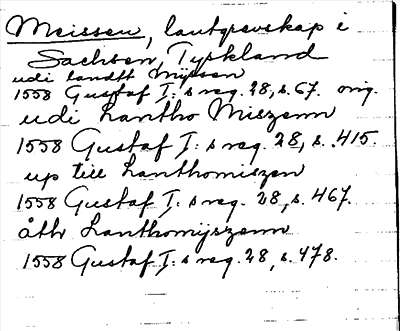 Meissen, lantgrevskap i
Sachsen, Tyskland
udi landtt Mijssen
1558 Gustaf I:s reg. 28, s. 67. orig.
udi Lantho Miszenn
1558 Gustaf I:s reg. 28, s. 415.
up till Lanthomiszen
1558 Gustaf I:s reg. 28, s. 467.
åthr Lanthomijszenn
1558 Gustaf I:s reg. 28, s. 478.